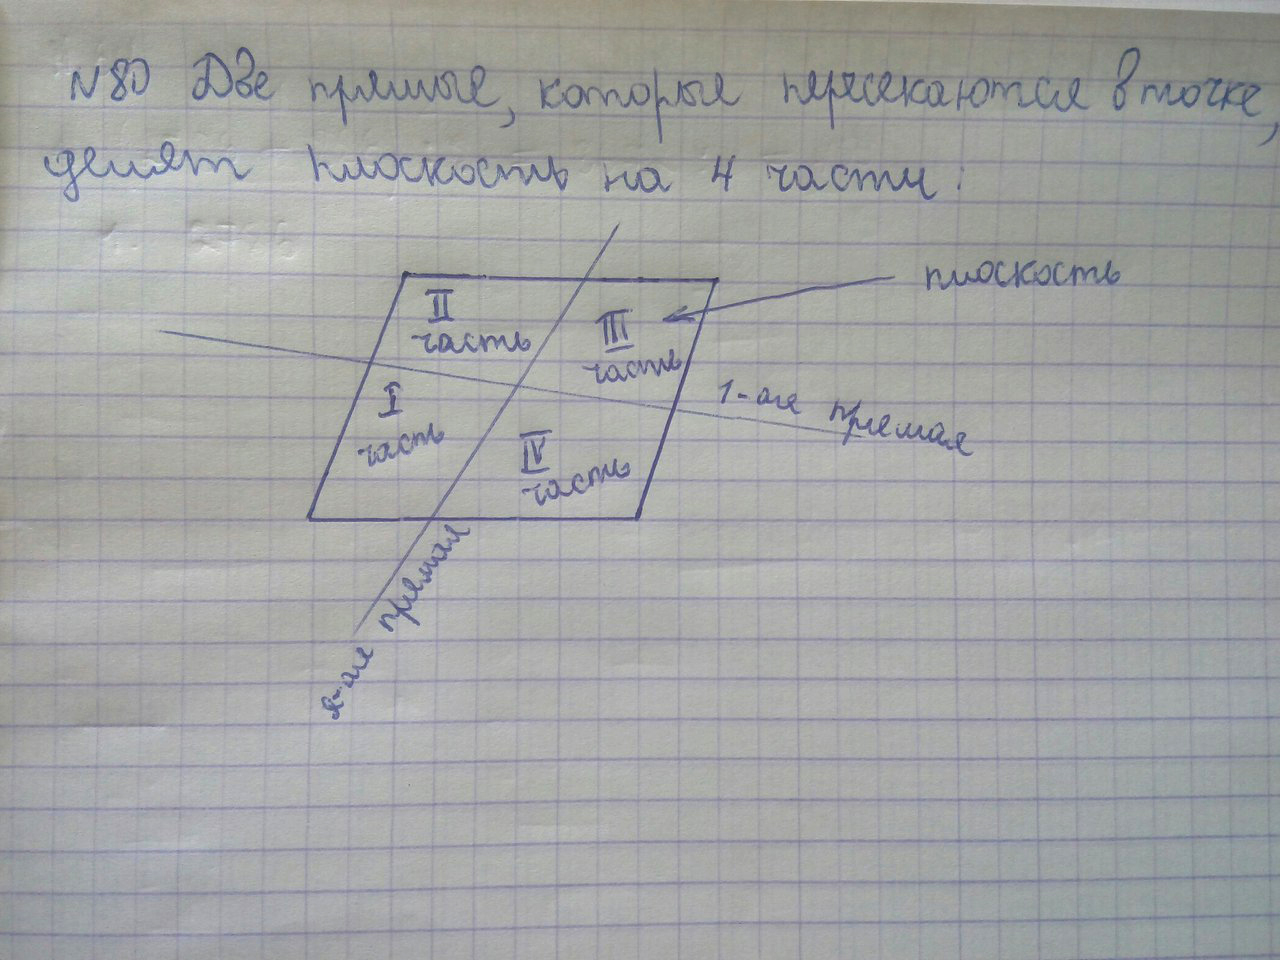 N80 Две прямые, которые пересекаются в точке,
делят плоскость на 4 части:
плоскость
II
часть
III
часть
I
часть
1-ая прямая
IV
часть
2-ая прямая